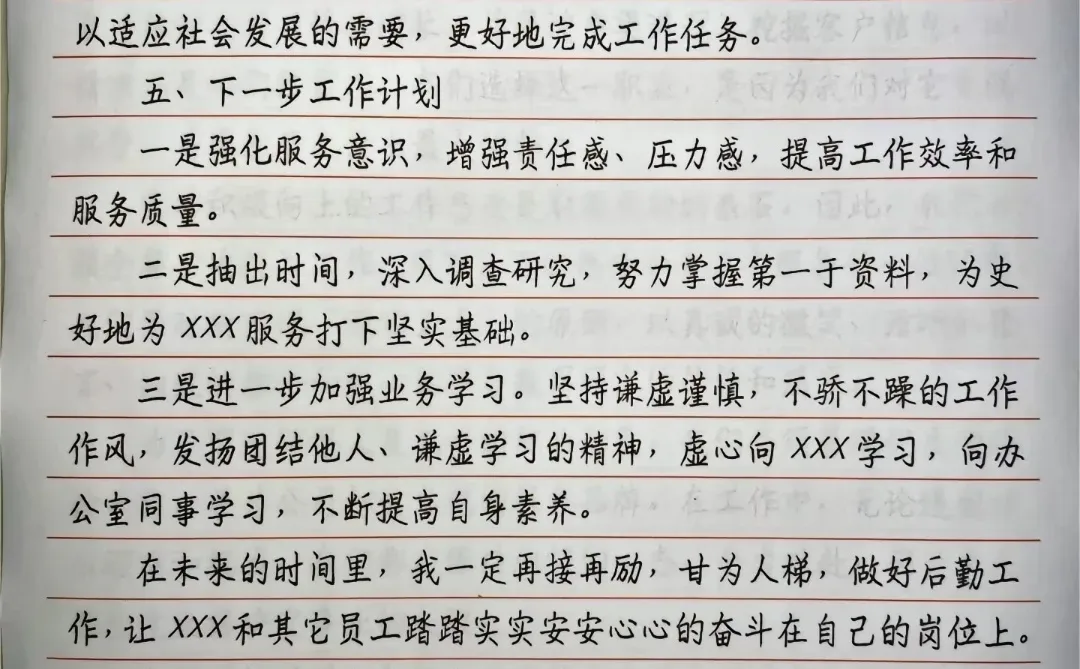 以适应社会发展的需要，更好地完成工作任务。
五、下一步工作计划
一是强化服务意识，增强责任感、压力感，提高工作效率和
服务质量。
二是抽出时间，深入调查研究，努力掌握第一于资料，为史
好地为 XXX 服务打下坚实基础。
三是进一步加强业务学习。坚持谦虚谨慎，不骄不躁的工作
作风，发扬团结他人、谦虚学习的精神，虚心向 XXX 学习，向办
公室同事学习，不断提高自身素养。
在未来的时间里，我一定再接再励，甘为人梯，做好后勤工
作，让 XXX 和其它员工踏踏实实安安心心的奋斗在自己的岗位上。